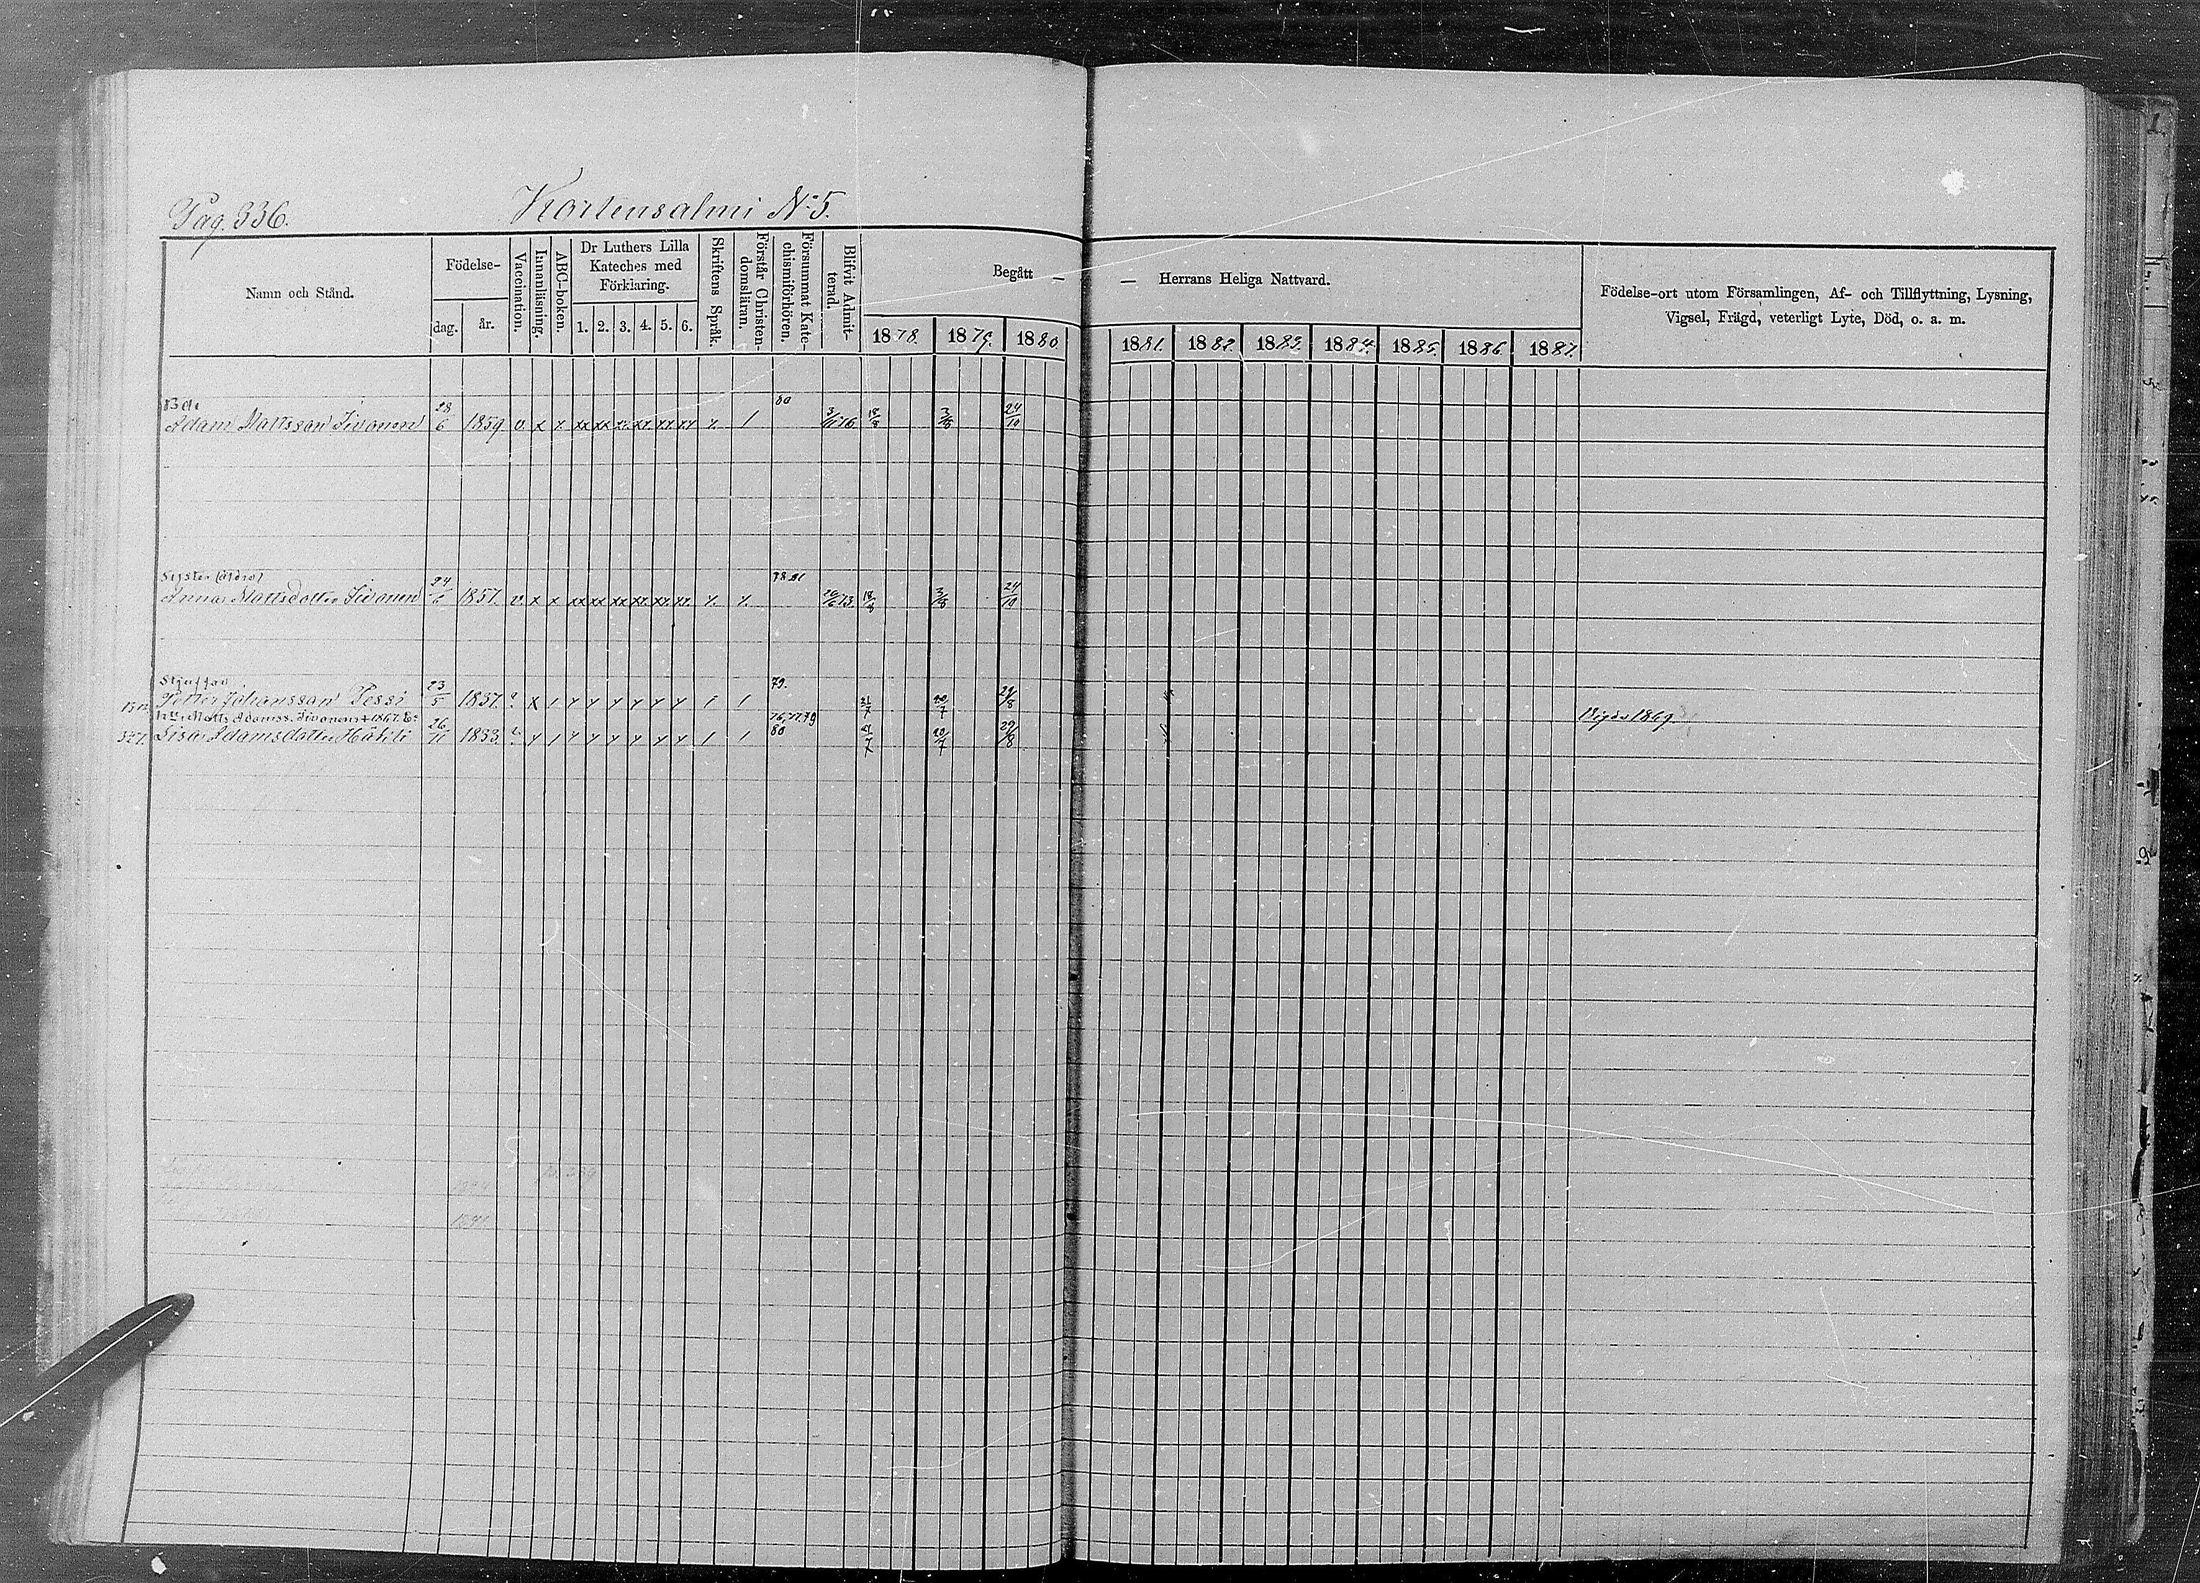 Pag. 336. Kortensalmi № 5.
Namn och Stånd. Födelse- dag. år. Vaccination. Innanläsning. ABC-boken. Dr Luthers Lilla Kateches med Förklaring. 1. 2. 3. 4. 5. 6. Skriftens Språk. Förstår Christendomsläran. Försummat Katechismiförhören. Blifvit Admitterad. Begått — — Herrans Heliga Nattvard. Födelse-ort utom Församlingen, Af- och Tillflyttning, Lysning, Vigsel, Frägd, veterligt Lyte, Död, o. a. m.
1878. 1879. 1880 1881. 1882. 1883. 1884. 1885. 1886. 1887.
80
Adam Mattsson Iivonen 28/6 1859 v. x x xx xx xx xx xx xx x / 18/8 3/8 24/10
Syster (äldre)
Anna Mattsdotter Iivonen 24/6 1857. v. x x xx xx xx xx xx xx x. x. 18/8 3/8 24/10
Styffar 79.
Petter Johansson Tessi 23/5 1837. x / / / 21/7 20/7 29/8
Matts Adamss. Iivonens + 1867. E: 76, 77, 79 Vigde 1869.
327. Lisa Adamsdotter 26/11 1833 / / / 80 21/7 20/7 29/8